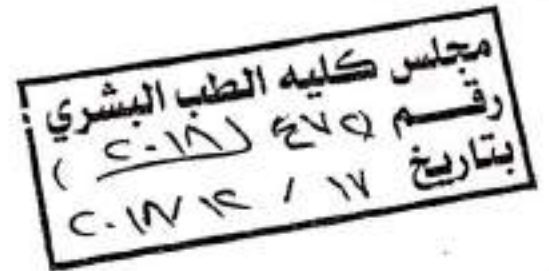 مجلس كليه الطب البشري
رقم (٤٧٥) (٢٠١٨)
بتاريخ ١٧ / ١٢ / ٢٠١٨